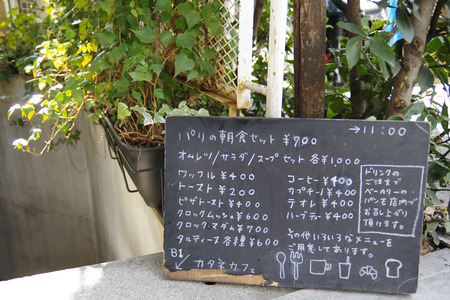 パリの朝食セット ¥900
→11:00
オムレツ/サラダ/スープ セット 各¥1000
ワッフル ¥400
トースト ¥200
ピザトースト ¥400
クロックムッシュ ¥600
クロックマダム ¥700
タルティーヌ 各種 ¥600
コーヒー ¥400
カプチーノ ¥400
テオレ ¥400
ハーブティー ¥400
その他いろいろなメニューを
ご用意してあります。
ドリンクの
ご注文で
ベーカリーの
パンを店内で
お召し上がり
頂けます。
B1
↙ カタネカフェ